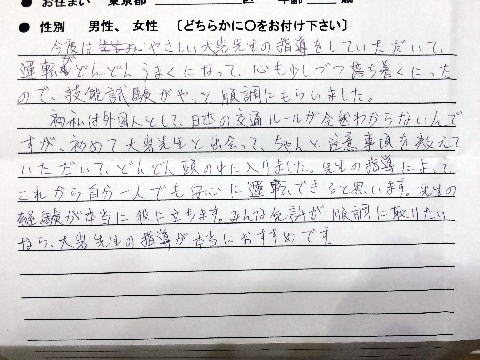 ● お住まい 東京都 区 年齢 歳
● 性別 男性、女性 〔どちらかに〇をお付け下さい〕
今度はやさしい大岩先生の指導をしていただいて、
運転がどんどんうまくになって、心も少しづつ落ち着くにった
ので、技能試験がやっと順調にもらいました。
初私は外国人として、日本の交通ルールが全然わからないんで
すが、初めて大岩先生と出会って、ちゃんと注意事項を教えて
いただいて、どんどん頭の中に入りました。先生の指導によって、
これから自分一人でも安心に運転できると思います。先生の
経験が本当に役に立ちます。みんな免許が順調に取りたい
なら、大岩先生の指導が本当におすすめです。